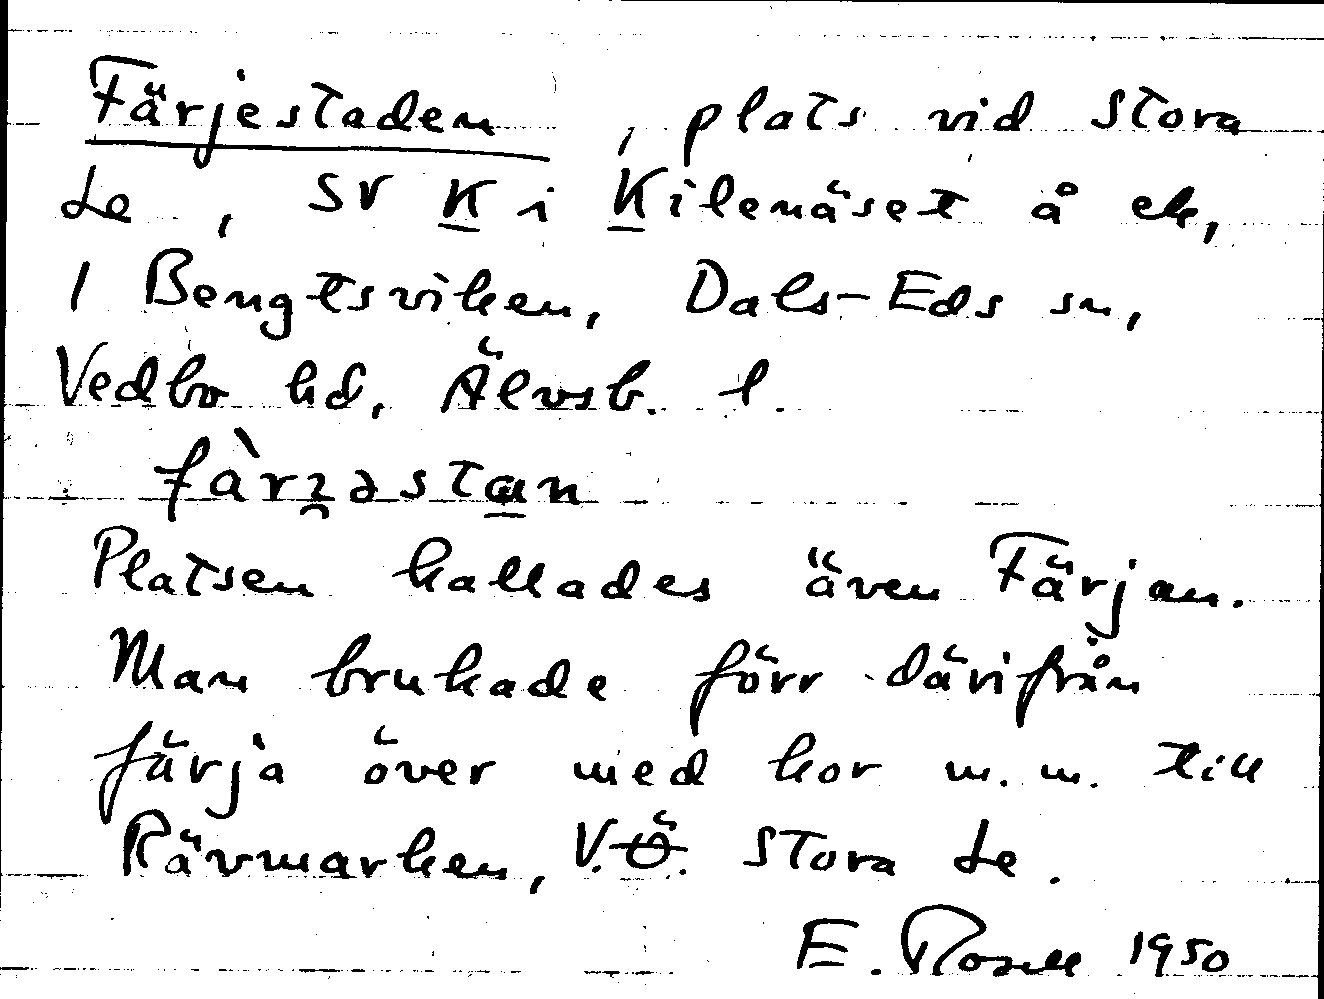 Färjestaden, plats vid Stora
Le, SV K i Kilenäset å ek,
1 Bengtsviken, Dals-Eds sn,
Vedbo hd, Älvsb. l.
Platsen kallades även Färjan.
Man brukade förr därifrån
färja över med kor m.m. till
Rävmarken, V. Stora Le.
E. Rosell 1950